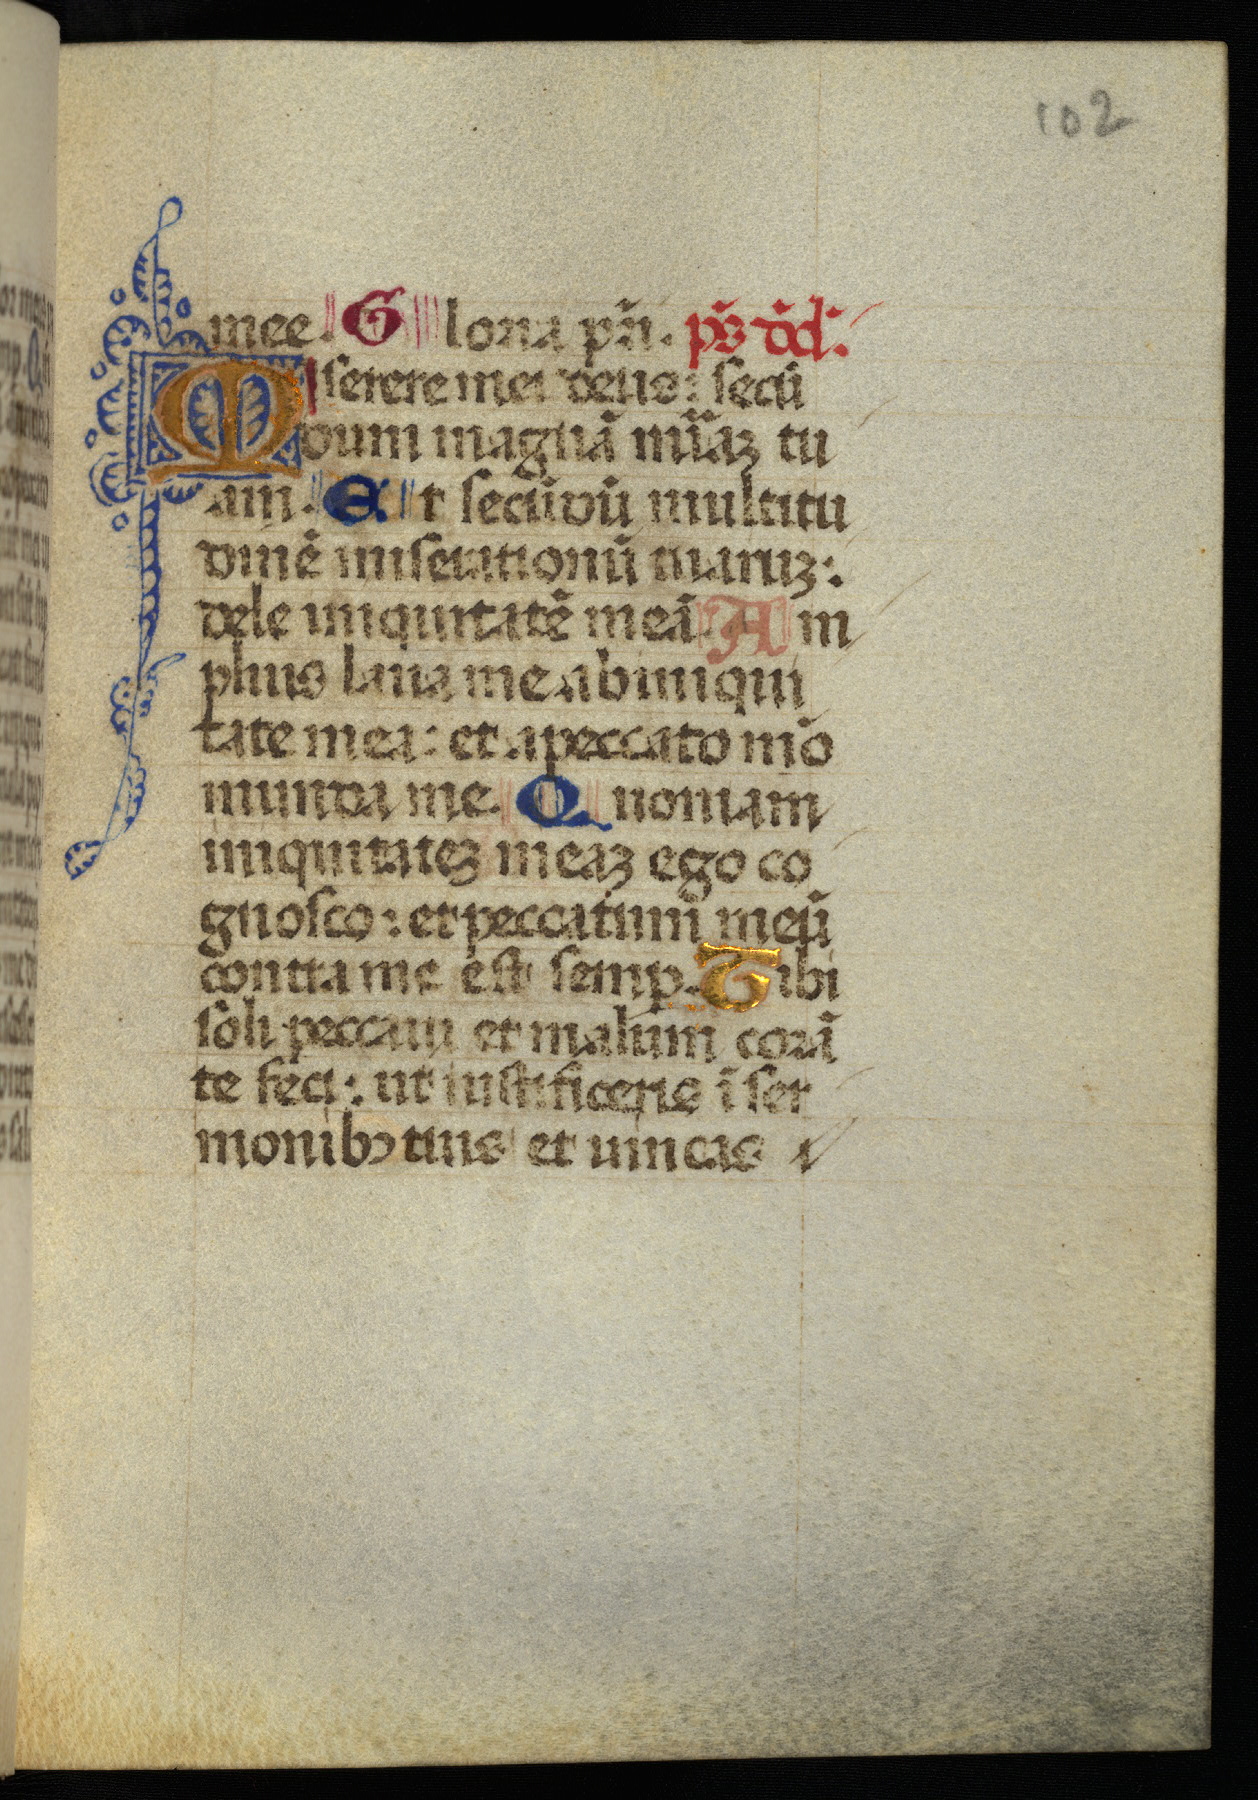 102
mee. Gloria pñ. pš dd̃.
Miserere mei deus: secũ
dum magnã miãz tu
am. Et secũdũ multitu
dinẽ miserationũ tuaruz:
dele iniquitatẽ meã Am
plius laua me ab iniqui
tate mea: et a peccato mõ
munda me. Quoniam
iniquitatez meaz ego co
gnosco: et peccatum meũ
contra me est semp. Tibi
soli peccaui et malum corã
te feci: ut iustificeris ĩ ser
monibꝰ tuis et uincas